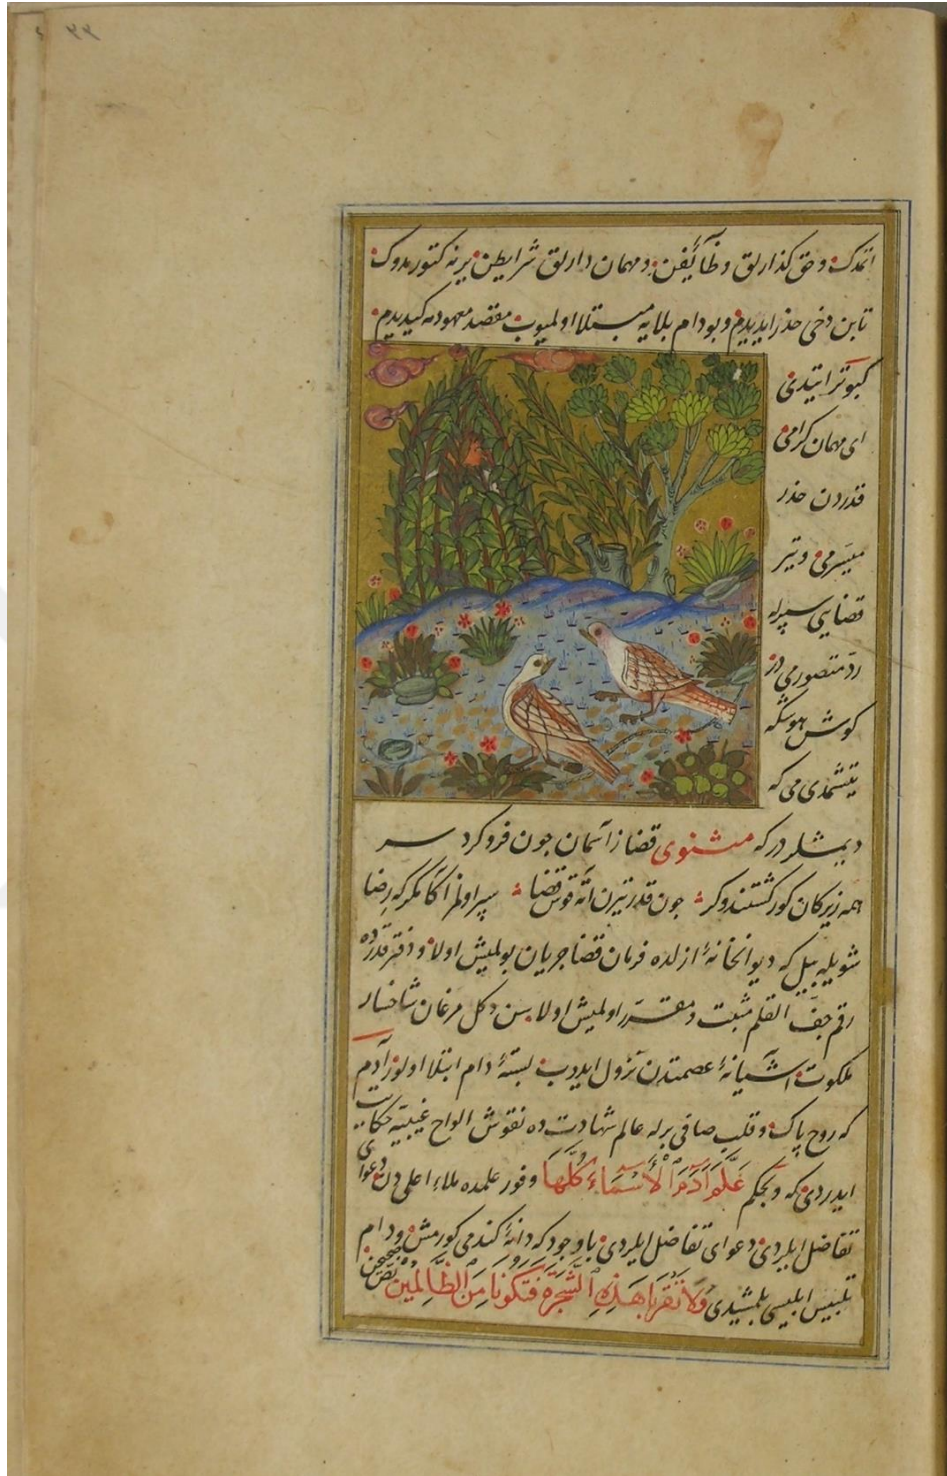 ٣٣
اتمدك وحق كذارلق وظائفن ومهمان دارلق شرايطن يرنه كتورمدوك
تابن دخى حذر ايديدم وبو دام بلايه مبتلا اولميوب مقصد معهودمه كيديدم
كبوتر ايتدى
اى مهمان كرامى
قدردن حذر
ميسرمى وتير
قضايى سپرله
رد متصورمى در
كوش هوشكه
يتشمدى مى كه
ديمشلردركه مثنوى قضا ز آسمان چون فرو كرد سر
همه زيركان كور كشتند وكر چون قدر تيرن اته قوس قضا سپر اولمز اكا مكركه رضا
شويله بيل كه ديوانخانهٔ ازلده فرمان قضا جريان بولميش اولا ودفتر قدرده
رقم جف القلم مثبت ومقرر اولميش اولا بسن دكل مرغان شاخسار
ملكوت آشيانهٔ عصمتدن نزول ايدوب بستهٔ دام ابتلا اولور آدم
كه روح پاك وقلب صافى برله عالم شهادت ده نقوش الواح غيبيه حكايت
ايدردى كه وبحكم عَلَّمَ آدَمَ ٱلْأَسْمَاءَ كُلَّهَا وفور علمده ملاء اعلى دن دعواى
تفاضل ايلردى دعواى تفاضل ايلردى باوجودكه دانهٔ كندمى كورمش ودام
تلبيس ابليسى بلمشيدى وَلَا تَقْرَبَا هَذِهِ ٱلشَّجَرَةَ فَتَكُونَا مِنَ ٱلظَّالِمِينَ نص صحيحن